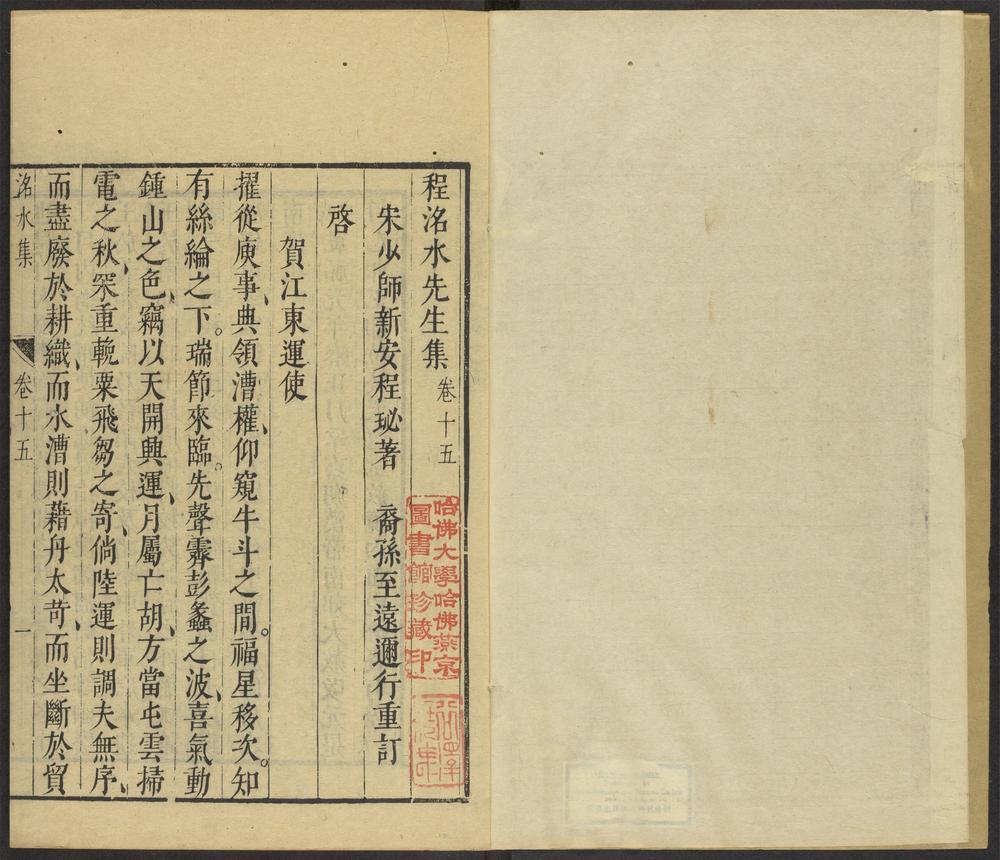 程洺水先生集 卷十五
宋少師新安程珌著 裔孫至遠邇行重訂
啓
賀江東運使
擢從庾事、典領漕權、仰窺牛斗之間。福星移次。知
有絲綸之下。瑞節來臨。先聲霽彭蠡之波、喜氣動
鍾山之色、竊以天開興運、月屬亡胡、方當屯雲掃
電之秋、罙重輓粟飛芻之寄、倘陸運則調夫無序、
而盡廢於耕織、而水漕則藉丹太苛、而坐斷於貿
洺水集 卷十五 一
哈佛大學哈佛燕京
圖書館珍藏印